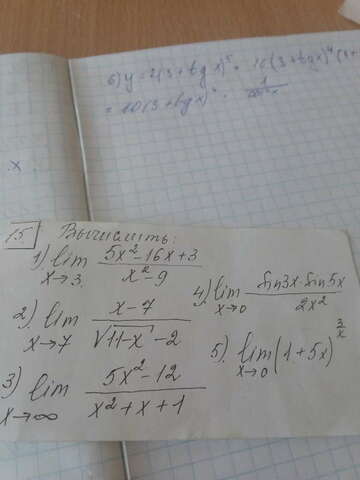 б) y = 2(3 + tg x)⁵ = 10(3 + tgx)⁴(3+
= 10(3 + tgx)⁴ ·
.x
15 Вычислить:
1) lim x→3 (5x² - 16x + 3)/(x² - 9)
2) lim x→7 (x - 7)/(√(11-x) - 2)
3) lim x→∞ (5x² - 12)/(x² + x + 1)
4) lim x→0 (sin3x·sin5x)/(2x²)
5) lim x→0 (1 + 5x)^(3/x)